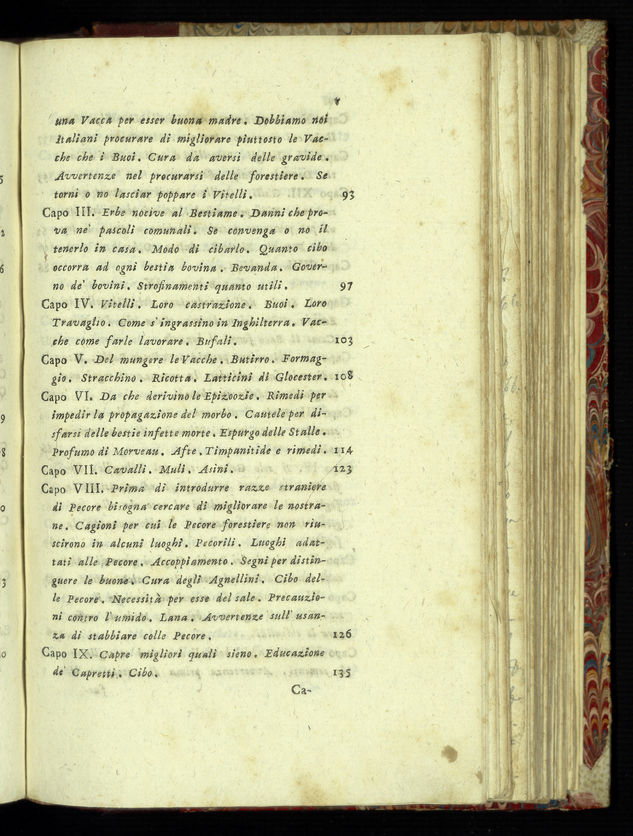 v
una Vacca per esser buona madre. Dobbiamo noi
Italiani procurare di migliorare piuttosto le Vac-
che che i Buoi. Cura da aversi delle gravide.
Avvertenze nel procurarsi delle forestiere. Se
torni o no lasciar poppare i Vitelli. 93
Capo III. Erbe nocive al Bestiame. Danni che pro-
va ne' pascoli comunali. Se convenga o no il
tenerlo in casa. Modo di cibarlo. Quanto cibo
occorra ad ogni bestia bovina. Bevanda. Gover-
no de' bovini. Strofinamenti quanto utili. 97
Capo IV. Vitelli. Loro castrazione. Buoi. Loro
Travaglio. Come s' ingrassino in Inghilterra. Vac-
che come farle lavorare. Bufali. 103
Capo V. Del mungere le Vacche. Butirro. Formag-
gio. Stracchino. Ricotta. Latticini di Glocester. 108
Capo VI. Da che derivino le Epizoozie. Rimedi per
impedir la propagazione del morbo. Cautele per di-
sfarsi delle bestie infette morte. Espurgo delle Stalle.
Profumo di Morveau. Afte. Timpanitide e rimedi. 114
Capo VII. Cavalli. Muli. Asini. 123
Capo VIII. Prima di introdurre razze straniere
di Pecore bisogna cercare di migliorare le nostra-
ne. Cagioni per cui le Pecore forestiere non riu-
scirono in alcuni luoghi. Pecorili. Luoghi adat-
tati alle Pecore. Accoppiamento. Segni per distin-
guere le buone. Cura degli Agnellini. Cibo del-
le Pecore. Necessità per esse del sale. Precauzio-
ni contro l' umido. Lana. Avvertenze sull' usan-
za di stabbiare colle Pecore. 126
Capo IX. Capre migliori quali sieno. Educazione
de' Capretti. Cibo. 135
Ca-